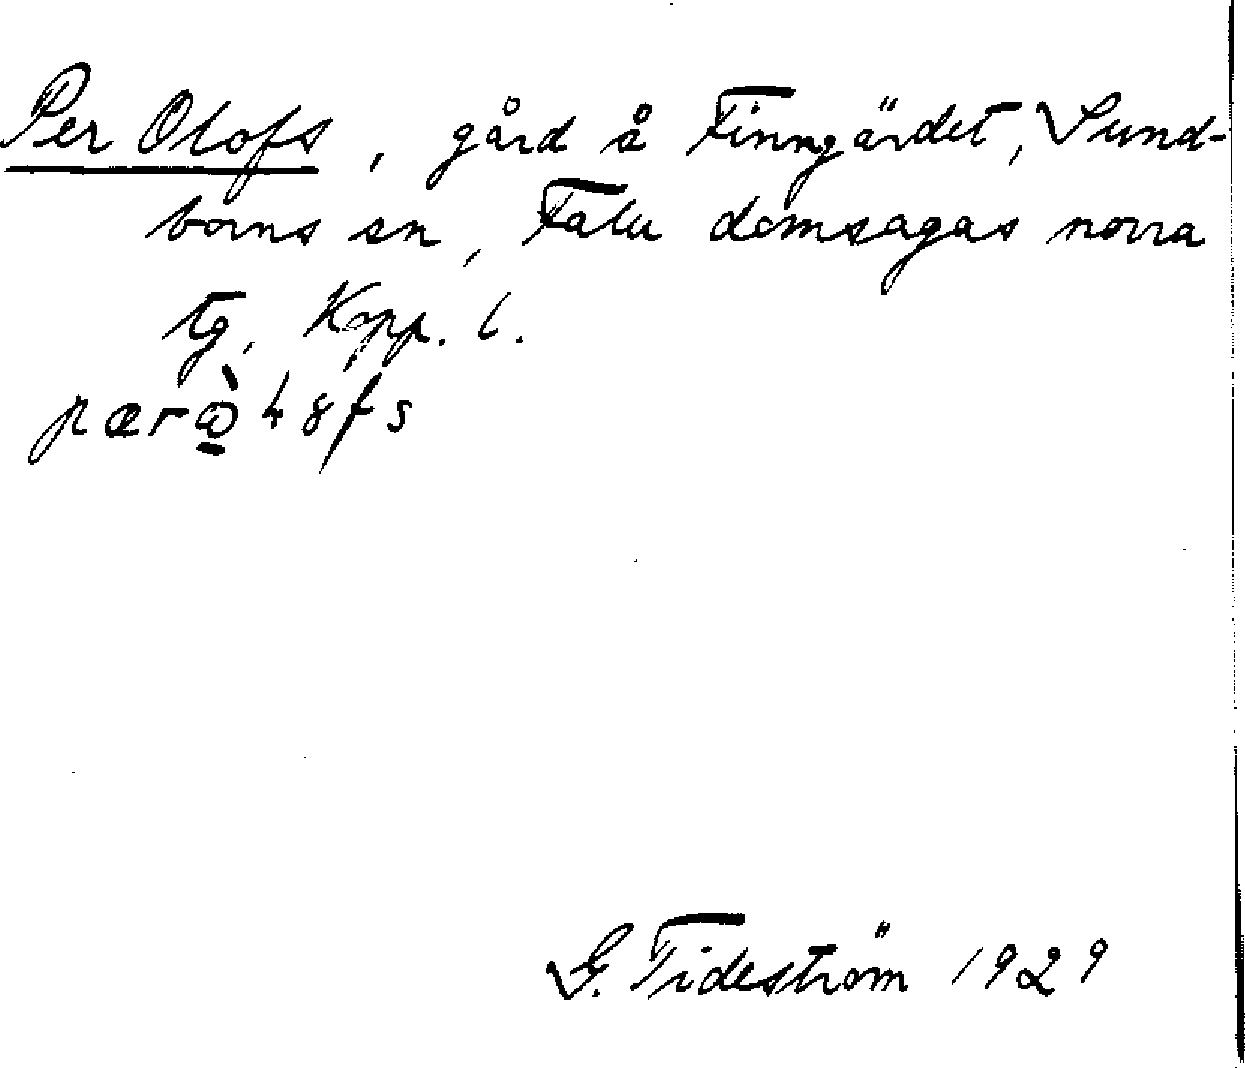 Per Olofs, gård å Finngärdet, Sund-
borns sn, Falu domsagas norra
tg, Kopp. l.
G. Tideström 1929